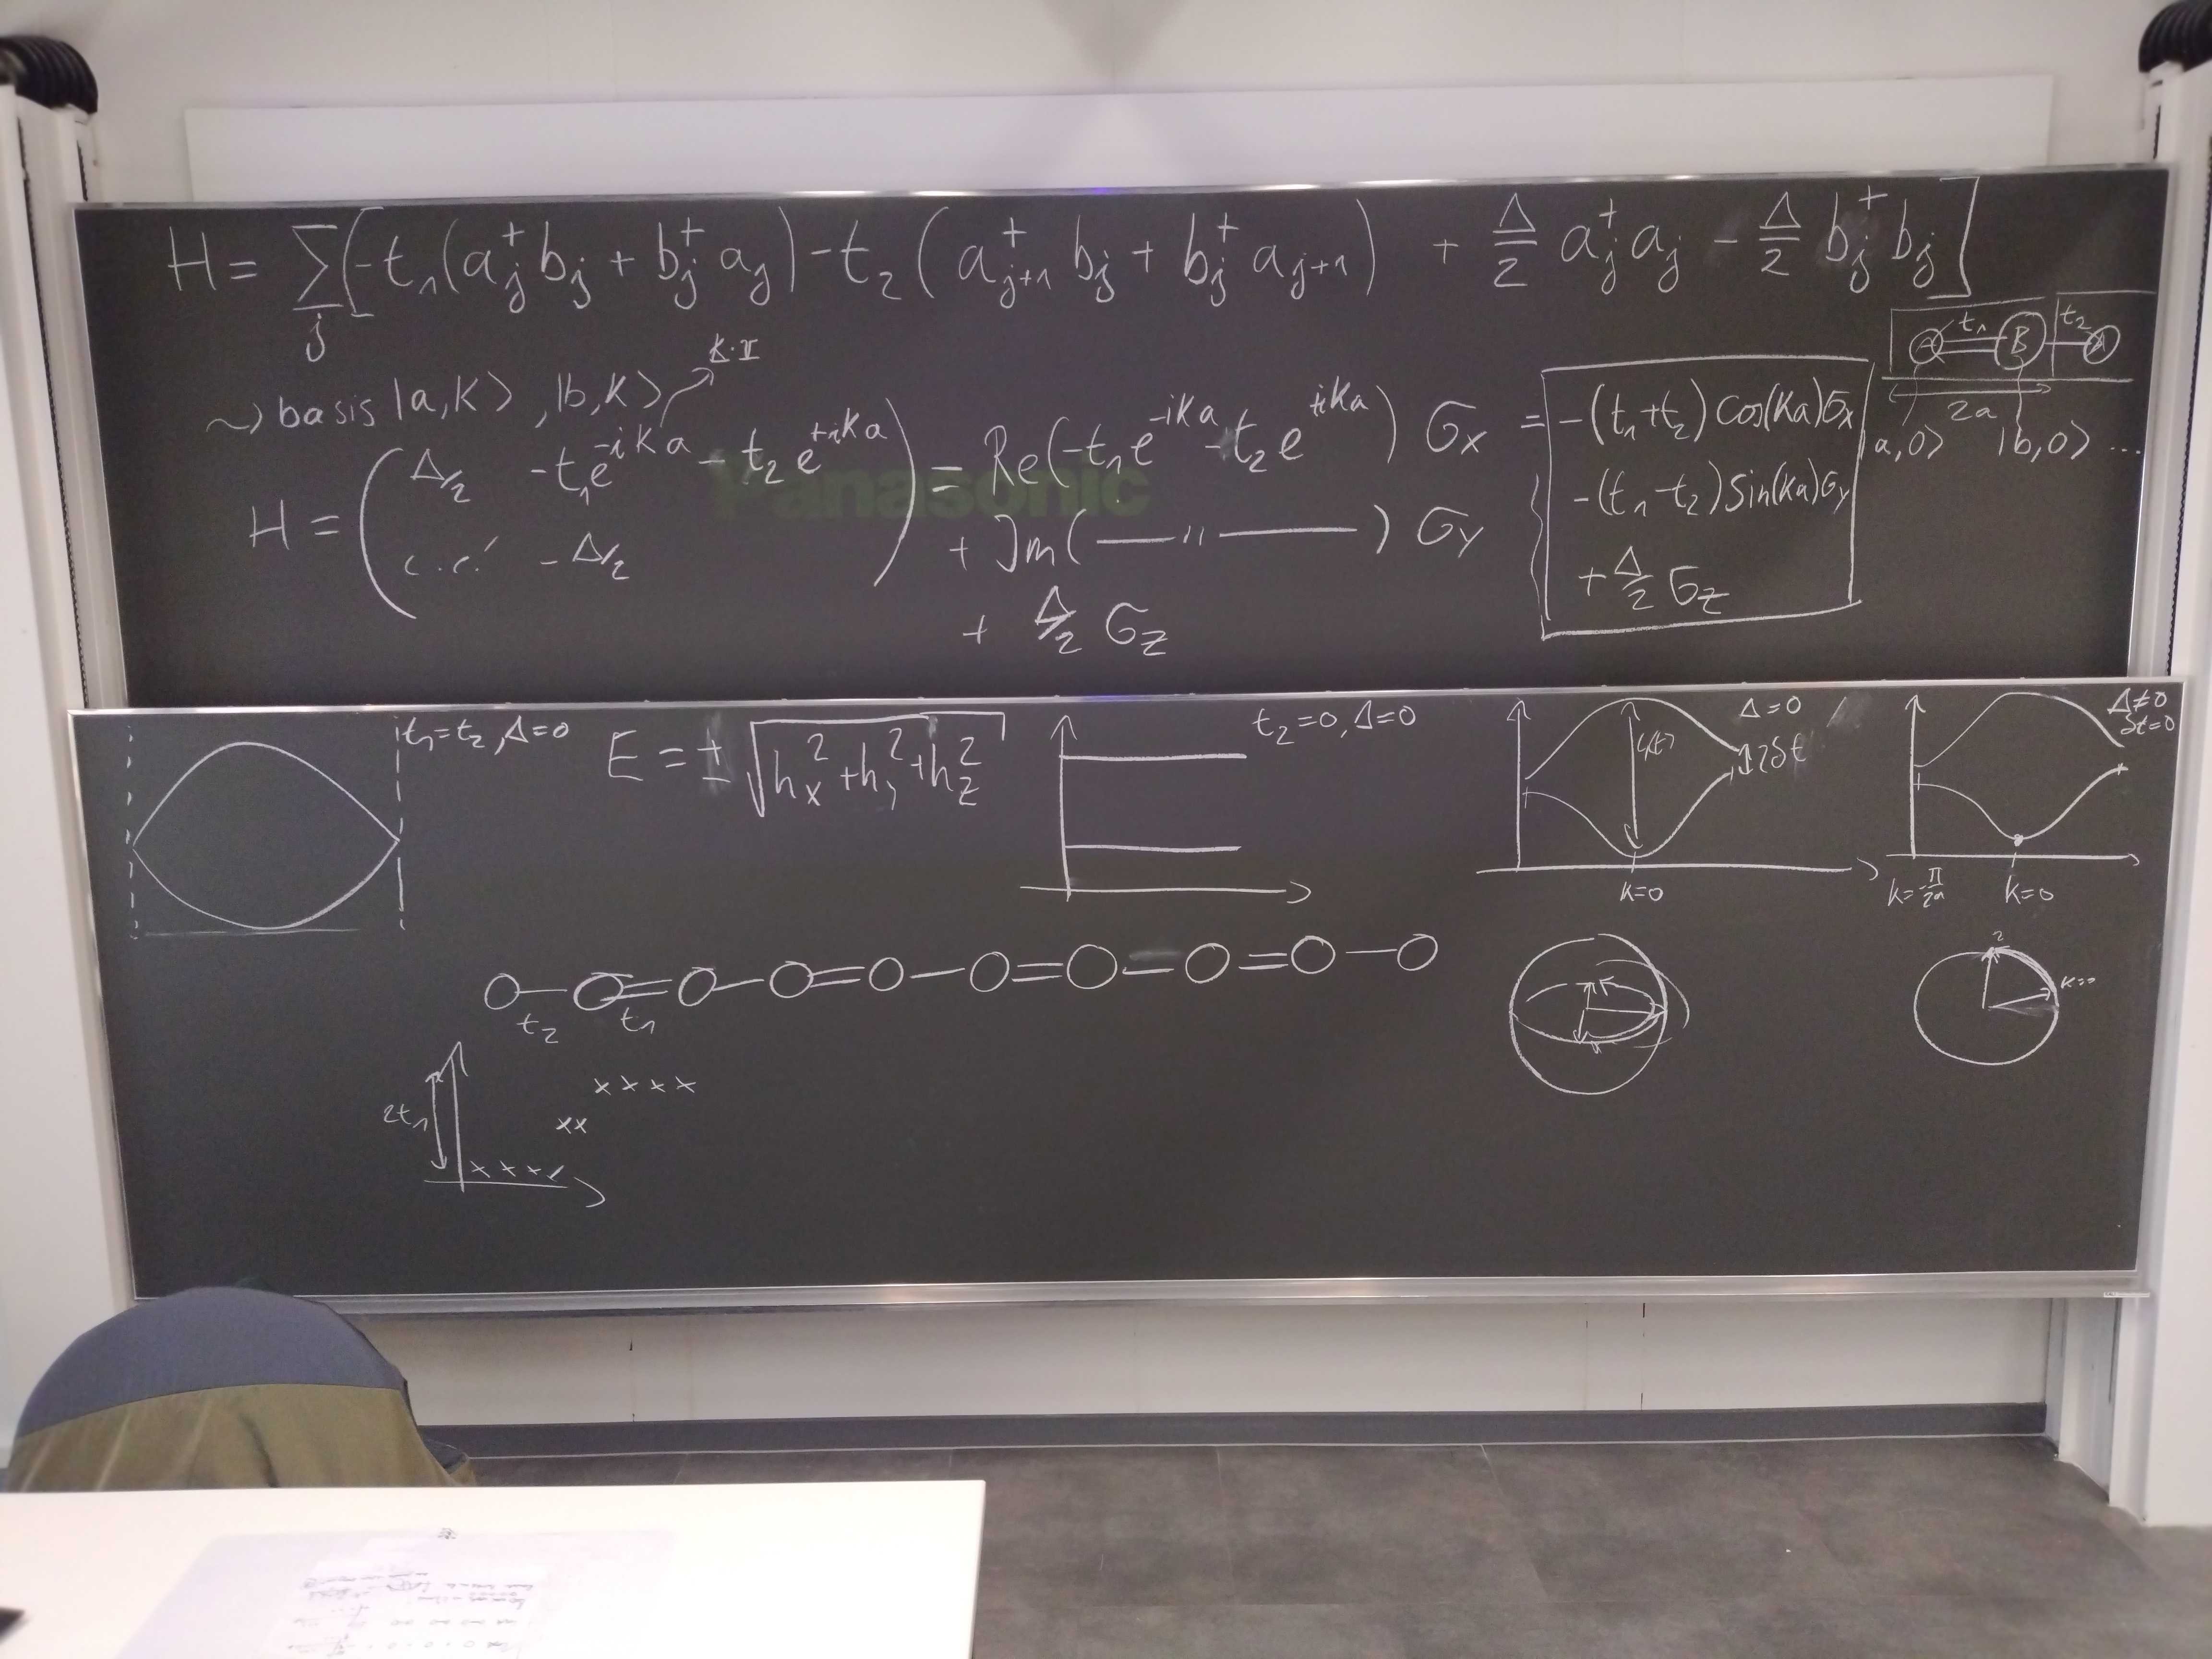 H = ∑_j [-t₁(a_j⁺ b_j + b_j⁺ a_j) - t₂(a_{j+1}⁺ b_j + b_j⁺ a_{j+1}) + Δ/2 a_j⁺ a_j - Δ/2 b_j⁺ b_j]
A t₁ B t₂ A
2a
|a,0> |b,0> ...
~) basis |a,K>, |b,K>
H = ( Δ/2 -t₁e^{-iKa} - t₂e^{+iKa}
c.c. -Δ/2 )
= Re(-t₁e^{-iKa} - t₂e^{+iKa}) σx
+ Im( —— " —— ) σy
+ Δ/2 σz
= -(t₁+t₂) cos(Ka)σx
-(t₁-t₂) sin(Ka)σy
+ Δ/2 σz
Panasonic
t₁=t₂, Δ=0
E = ± √(h_x² + h_y² + h_z²)
t₂=0, Δ=0
Δ=0
2δt
K=0
Δ≠0
δt=0
k=-π/2a
k=0
t₂ t₁
2t₁
xxxx
xx
xxxx